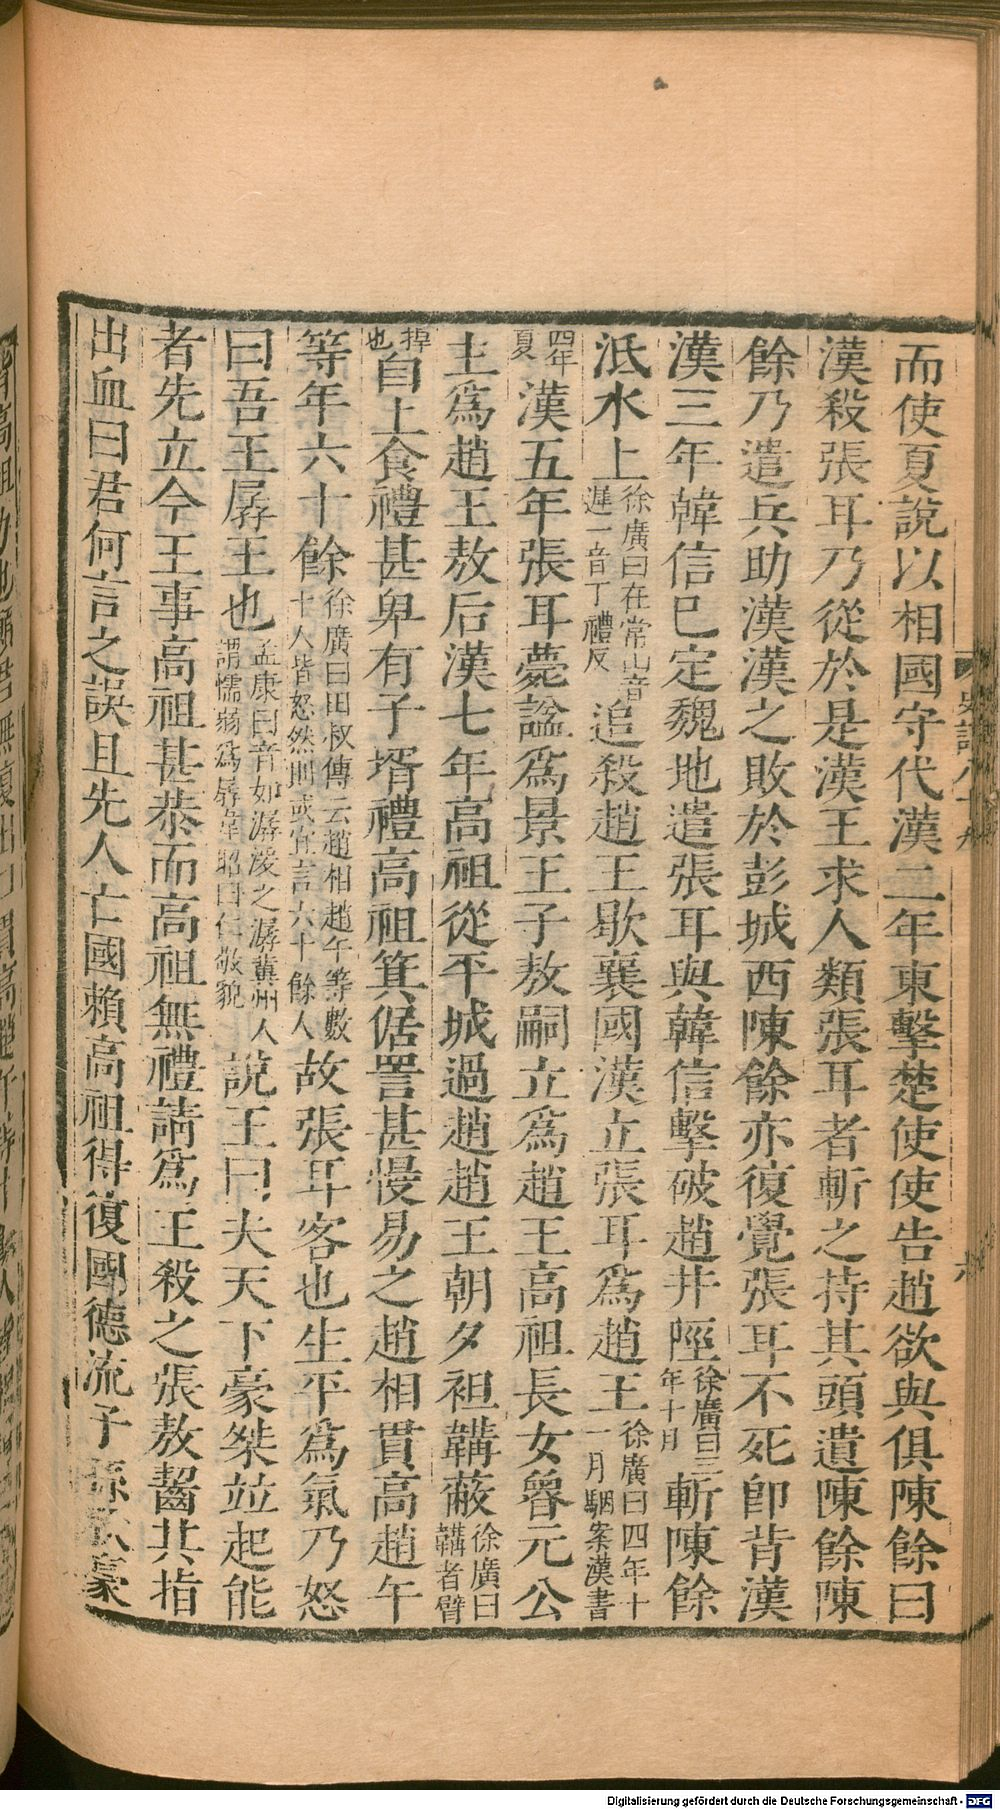 而使夏說以相國守代漢二年東擊楚使使告趙欲與俱陳餘曰
漢殺張耳乃從於是漢王求人類張耳者斬之持其頭遺陳餘陳
餘乃遣兵助漢漢之敗於彭城西陳餘亦復覺張耳不死卽背漢
漢三年韓信已定魏地遣張耳與韓信擊破趙井陘徐廣曰三年十月斬陳餘
泜水上徐廣曰在常山音遲一音丁禮反追殺趙王歇襄國漢立張耳爲趙王徐廣曰四年十一月駰案漢書
四年夏漢五年張耳薨諡爲景王子敖嗣立爲趙王高祖長女魯元公
主爲趙王敖后漢七年高祖從平城過趙趙王朝夕袒韝蔽徐廣曰韝者臂
捍也自上食禮甚卑有子壻禮高祖箕倨詈甚慢易之趙相貫高趙午
等年六十餘徐廣曰田叔傳云趙相趙午等數十人皆怒然則或宜言六十餘人故張耳客也生平爲氣乃怒
曰吾王孱王也孟康曰音如潺湲之潺冀州人謂懦弱爲孱韋昭曰仁敬貌說王曰夫天下豪桀竝起能
者先立今王事高祖甚恭而高祖無禮請爲王殺之張敖齧其指
出血曰君何言之誤且先人亡國賴高祖得復國德流子孫秋豪
史記八十九
六
Digitalisierung gefördert durch die Deutsche Forschungsgemeinschaft - DFG